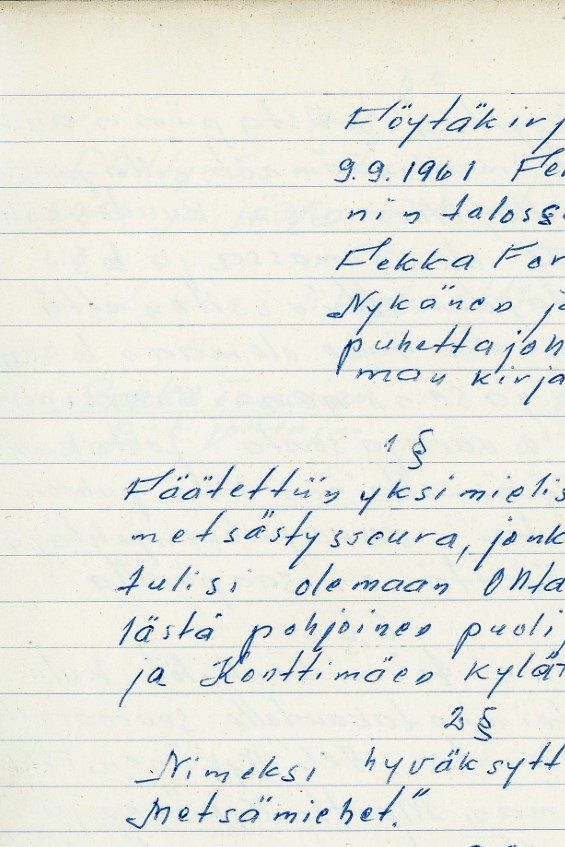 Pöytäkirj
9.9.1961 Pek
nin talossa
Pekka Kor
Nykänen ja
puhettajoh
man kirja
1 §
Päätettiin yksimielis
metsästysseura, jonk
tulisi olemaan Ohta
lästä pohjoinen puoli
ja Konttimäen kylät
2 §
Nimeksi hyväksytt
Metsämiehet."